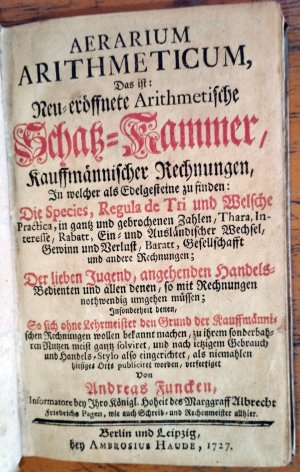 AERARIUM
ARITHMETICUM,
Das ist:
Neu-eröffnete Arithmetische
Schatz-Kammer,
Kauffmännischer Rechnungen,
In welcher als Edelgesteine zu finden:
Die Species, Regula de Tri und Welsche
Practica, in gantz und gebrochenen Zahlen, Thara, In-
teresse, Rabatt, Ein- und Ausländischer Wechsel,
Gewinn und Verlust, Baratt, Gesellschafft
und andere Rechnungen;
Der lieben Jugend, angehenden Handels-
Bedienten und allen denen, so mit Rechnungen
nothwendig umgehen müssen;
Insonderheit denen,
So sich ohne Lehrmeister den Grund der Kauffmänni-
schen Rechnungen wollen bekannt machen, zu ihrem sonderbah-
ren Nutzen meist gantz solviret, und nach jetzigem Gebrauch
und Handels-Stylo also eingerichtet, als niemahlen
hiesiges Orts publiciret worden, verfertiget
Von
Andreas Funcken,
Informatore bey Ihro Königl. Hoheit des Marggraff Albrecht
Friedrichs Pagen, wie auch Schreib- und Rechenmeister allhier.
Berlin und Leipzig,
bey AMBROSIUS HAUDE, 1727.